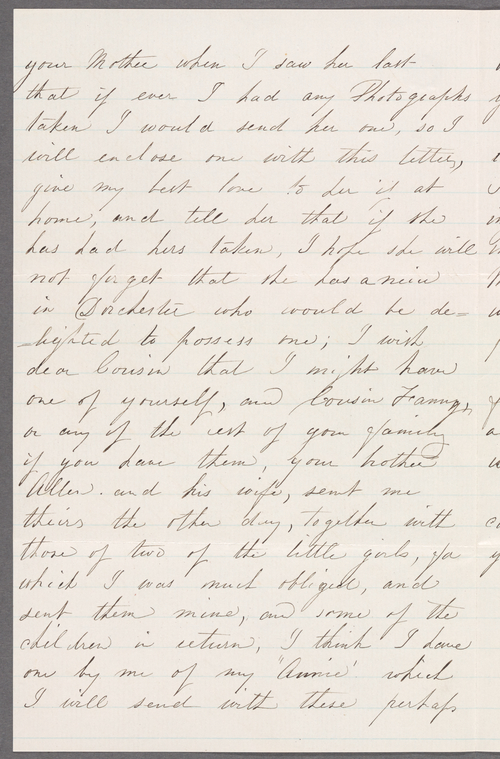 your Mother when I saw her last
that if ever I had any Photographs
taken I would send her one, so I
will enclose one with this letter,
give my best love to her if at
home, and tell her that if she
has had hers taken, I hope she will
not forget that she has a niece
in Dorchester who would be de=
=lighted to possess one; I wish
dear Cousin that I might have
one of yourself, and Cousin Fanny,
or any of the rest of your family
if you have them, your brother
Allen. and his wife, sent me
theirs the other day, together with
those of two of the little girls, for
which I was much obliged, and
sent them mine, and some of the
children in return, I think I have
one by me of my "Annie' which
I will send with these perhaps